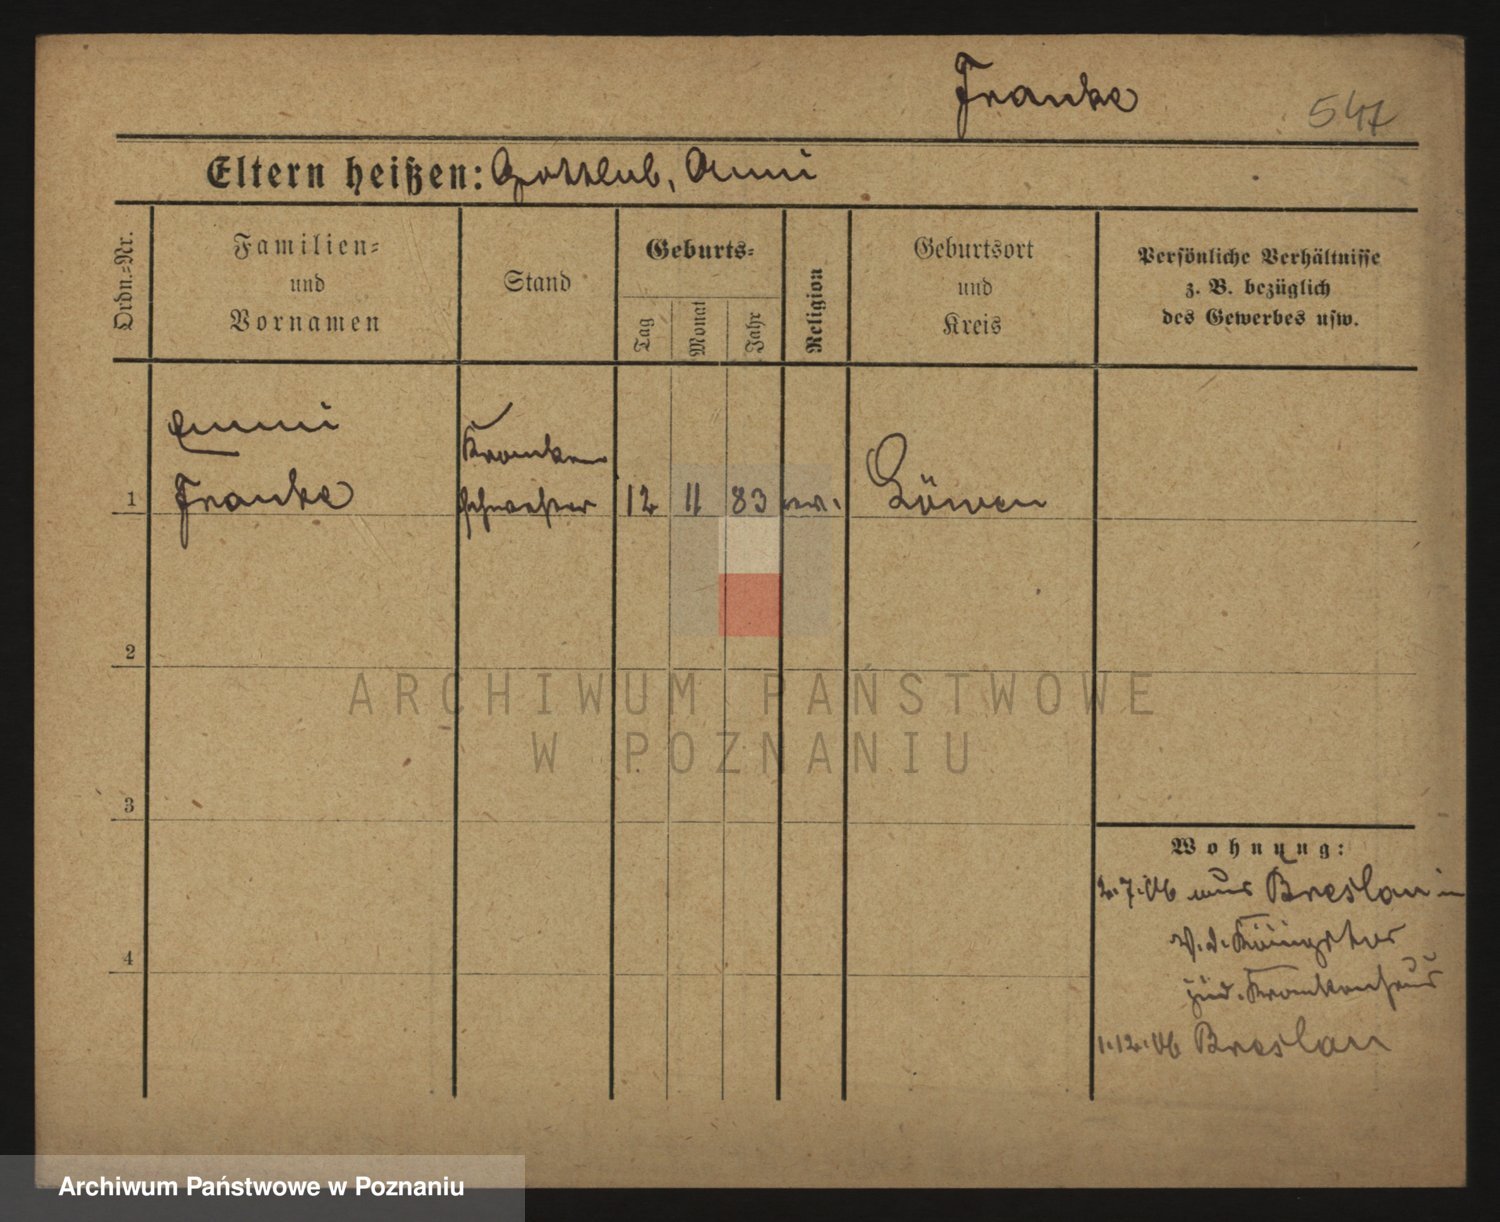 Franke
547
Eltern heißen: Gottlieb, Anni
Ordn.-Nr.
Familien-
und
Vornamen
Stand
Geburts-
Tag
Monat
Jahr
Religion
Geburtsort
und
Kreis
Persönliche Verhältnisse
z. B. bezüglich
des Gewerbes usw.
Emmi
Franke
Kranken
schwester
1
12
11
83
Löwen
2
3
4
Wohnung:
2.7.06 aus Breslau in
V. d. Königstor
jüd. Krankenhaus
1.12.06 Breslau
ARCHIWUM PAŃSTWOWE
W POZNANIU
Archiwum Państwowe w Poznaniu